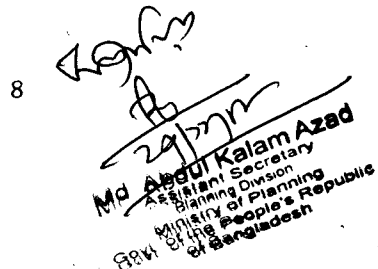 8
Md. Abdul Kalam Azad
Assistant Secretary
Planning Division
Ministry of Planning
Govt. of the People's Republic
of Bangladesh